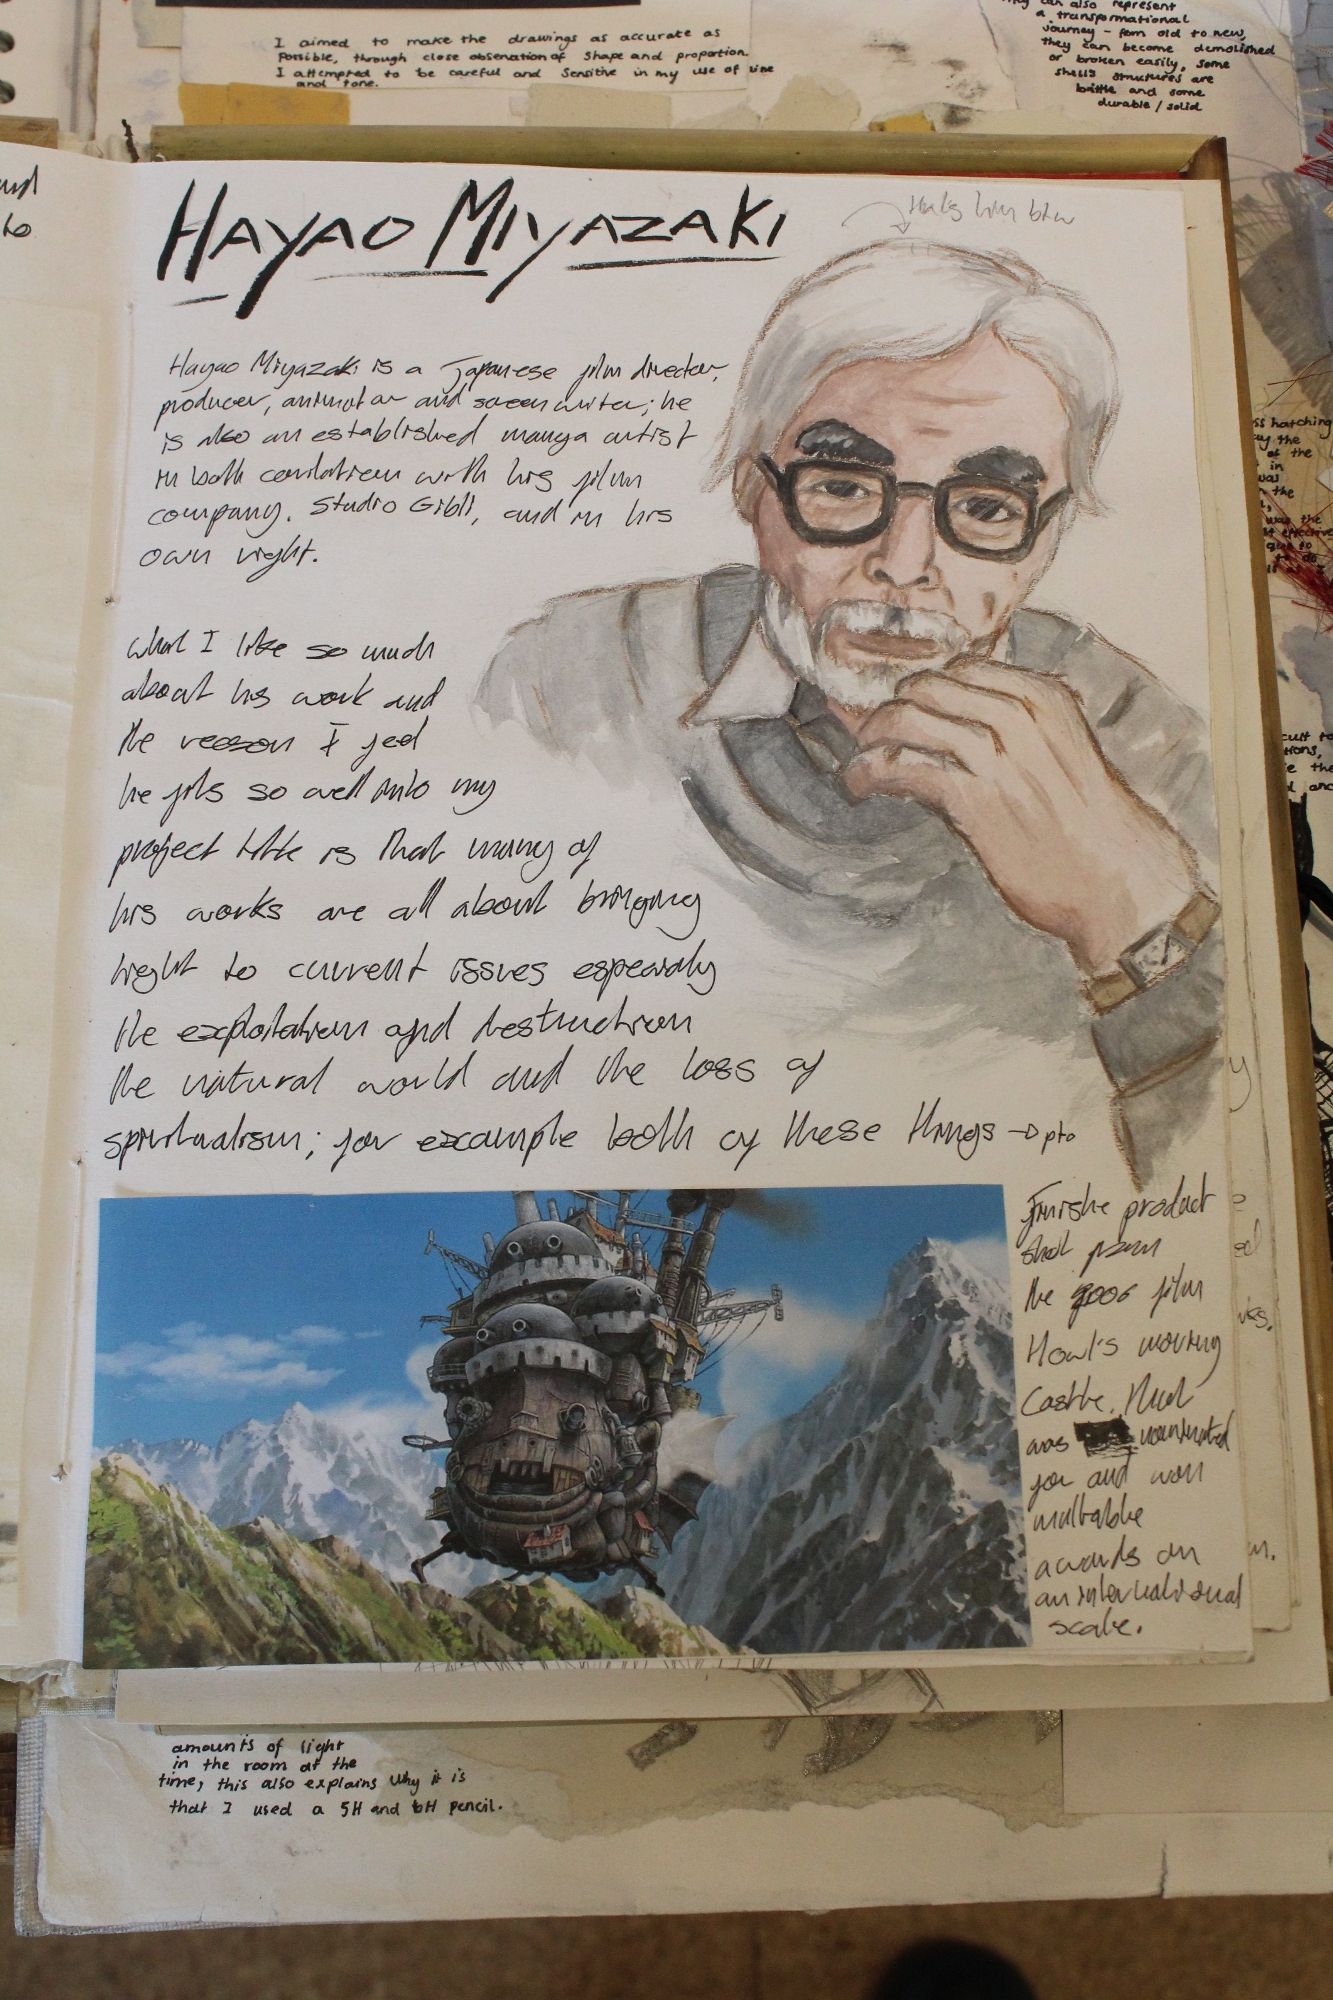 I aimed to make the drawings as accurate as
possible, through close observation of shape and proportion.
I attempted to be careful and sensitive in my use of line
and tone.
can also represent
a transformational
journey - from old to new,
they can become demolished
or broken easily, some
shells structures are
brittle and some
durable / solid
and
to
HAYAO MIYAZAKI
thats him btw
Hayao Miyazaki is a Japanese film director,
producer, animator and screen writer; he
is also an established manga artist
in both with his film
company, Studio Gibli, and in his
own right.
what I like so much
about his work and
the reason I feel
he fits so well into my
project title is that many of
his works are all about bringing
light to current issues especialy
the exploitation and destruction
the natural world and the loss of
spiritualism; for example both of these things → pto
Finishe product
shot from
the 2006 film
Howl's moving
Castle. that
was nominated
for and won
multable
awards on
an international
scale.
ss hatching
ay the
of the
in
was
the
was the
effective
due to
cult to
tions,
the
and
amounts of light
in the room at the
time, this also explains why it is
that I used a 5H and 6H pencil.